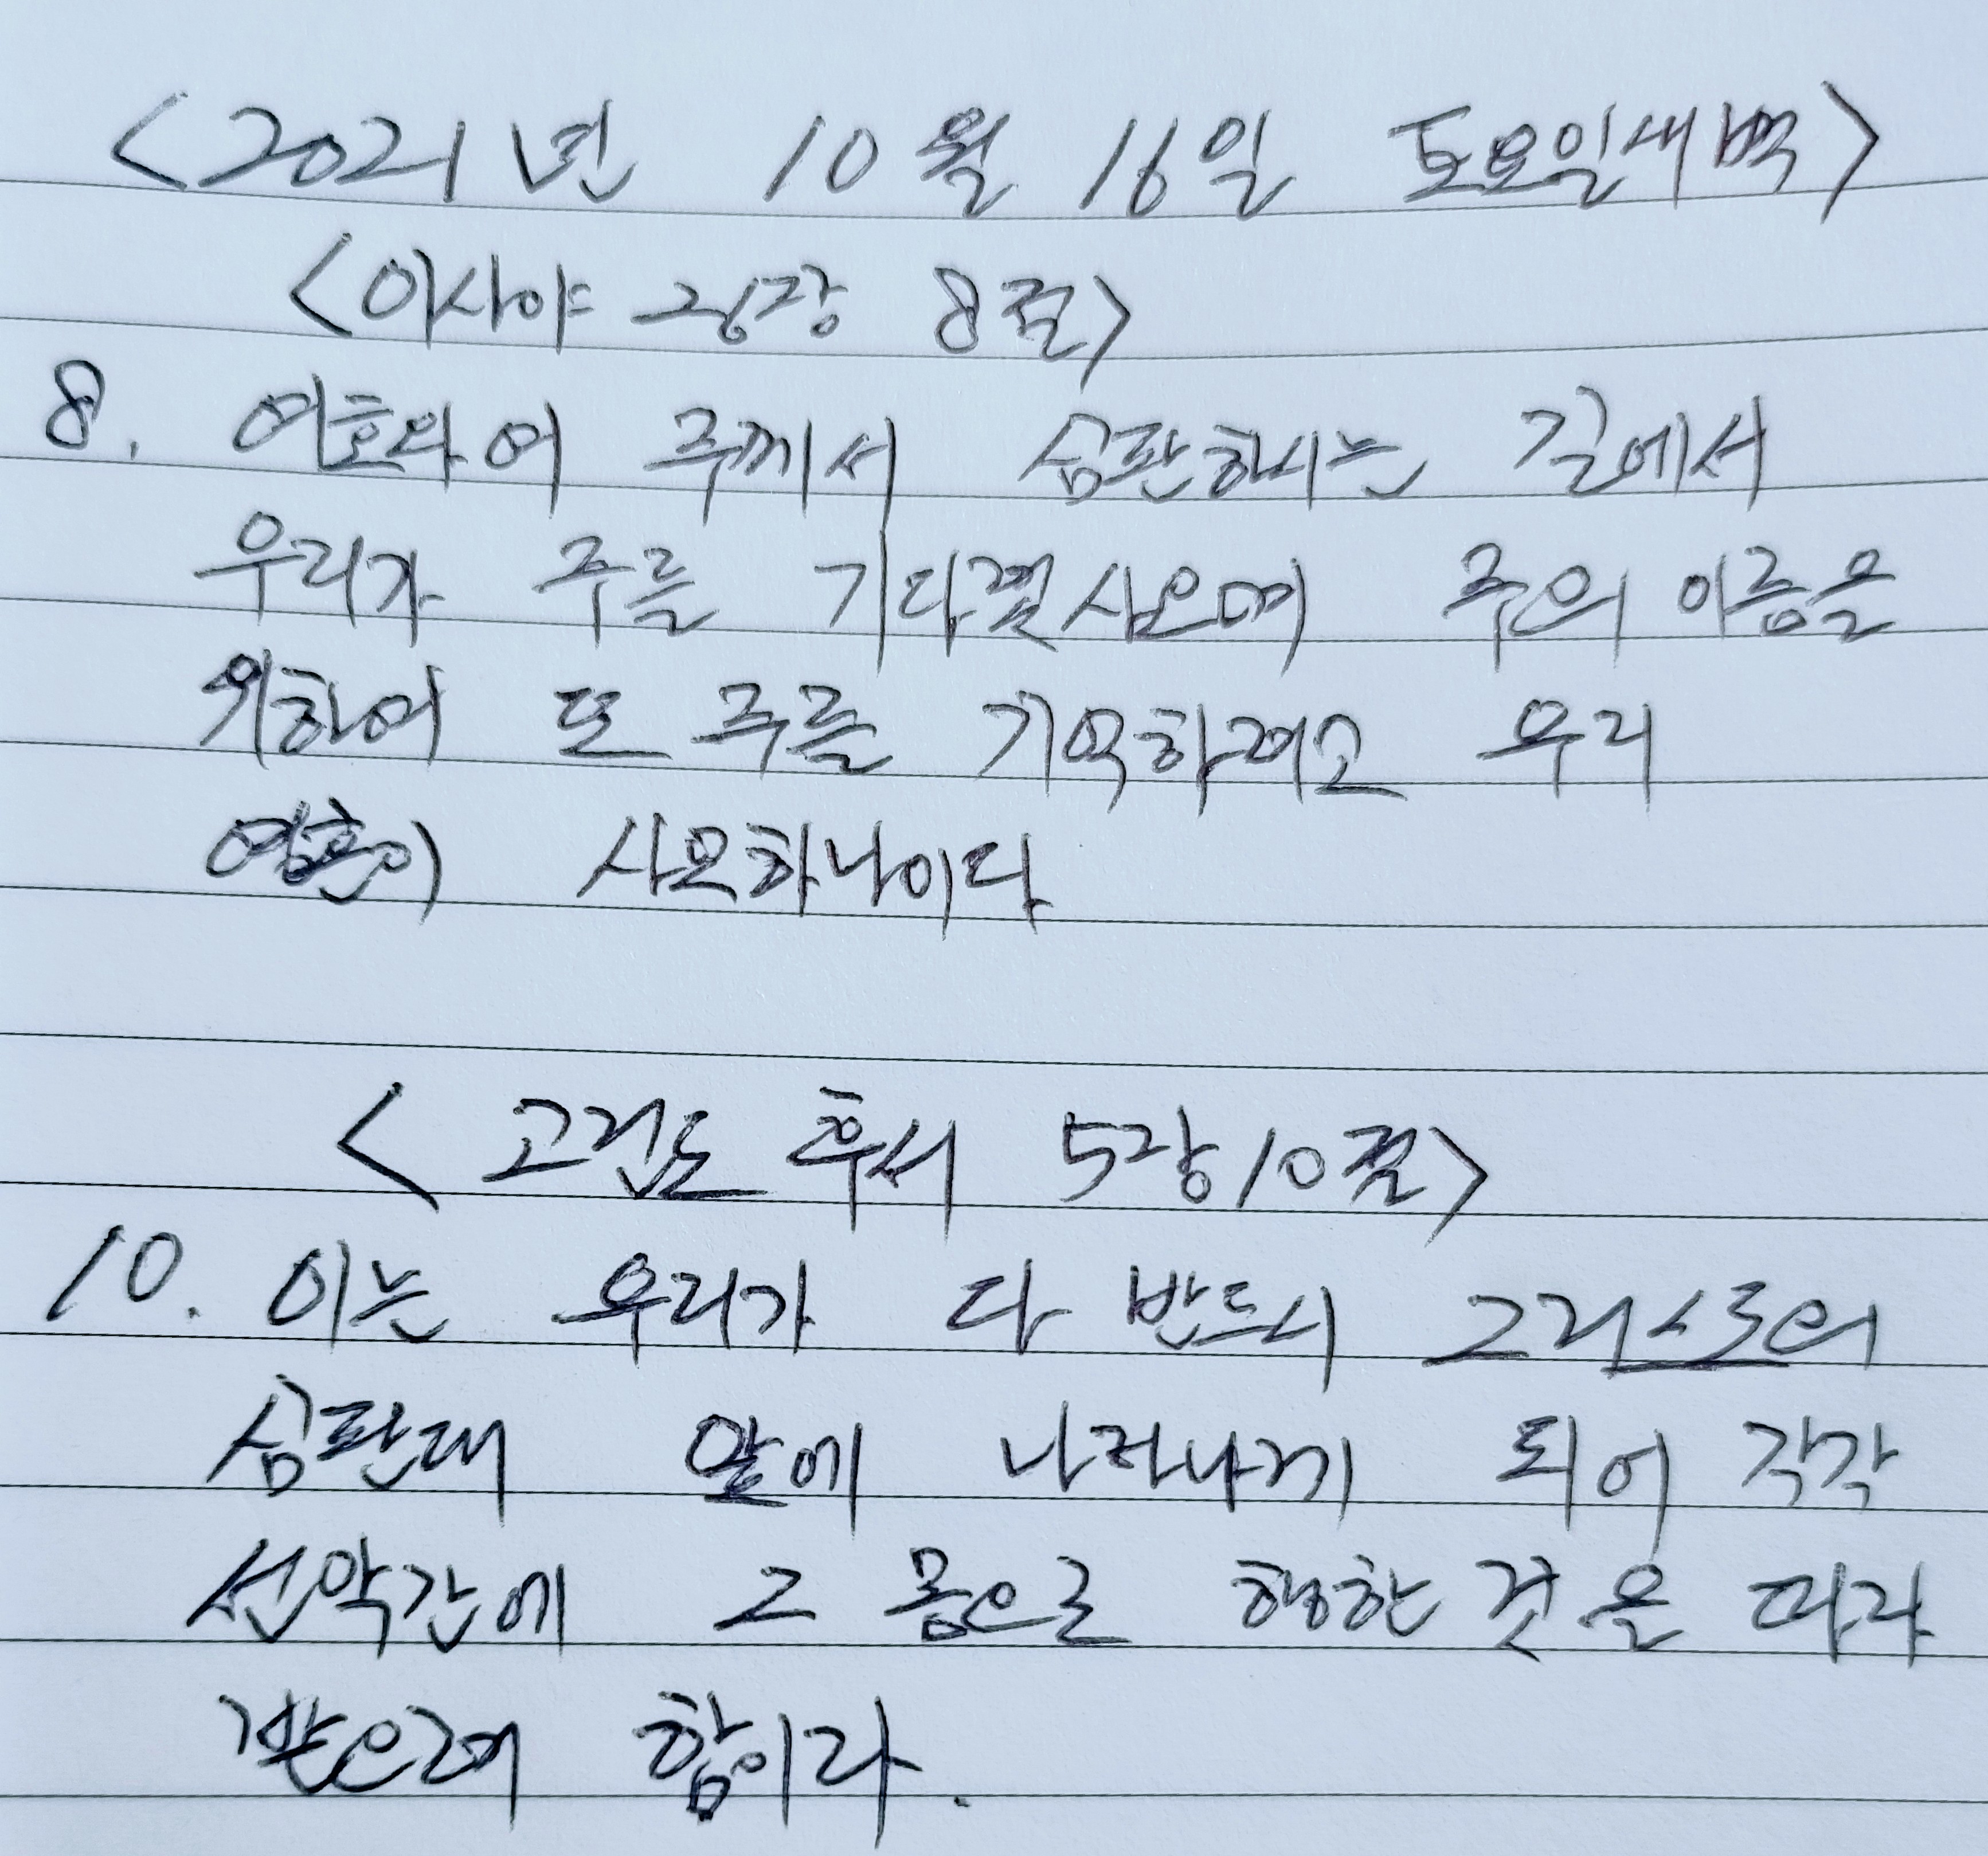 <2021년 10월 16일 토요일새벽>
<이사야 26장 8절>
8. 여호와여 주께서 심판하시는 길에서
우리가 주를 기다렸사오며 주의 이름을
위하여 또 주를 기억하려고 우리
영혼이 사모하나이다
<고린도 후서 5장10절>
10. 이는 우리가 다 반드시 그리스도의
심판대 앞에 나타나게 되어 각각
선악간에 그 몸으로 행한 것을 따라
받으려 함이라.